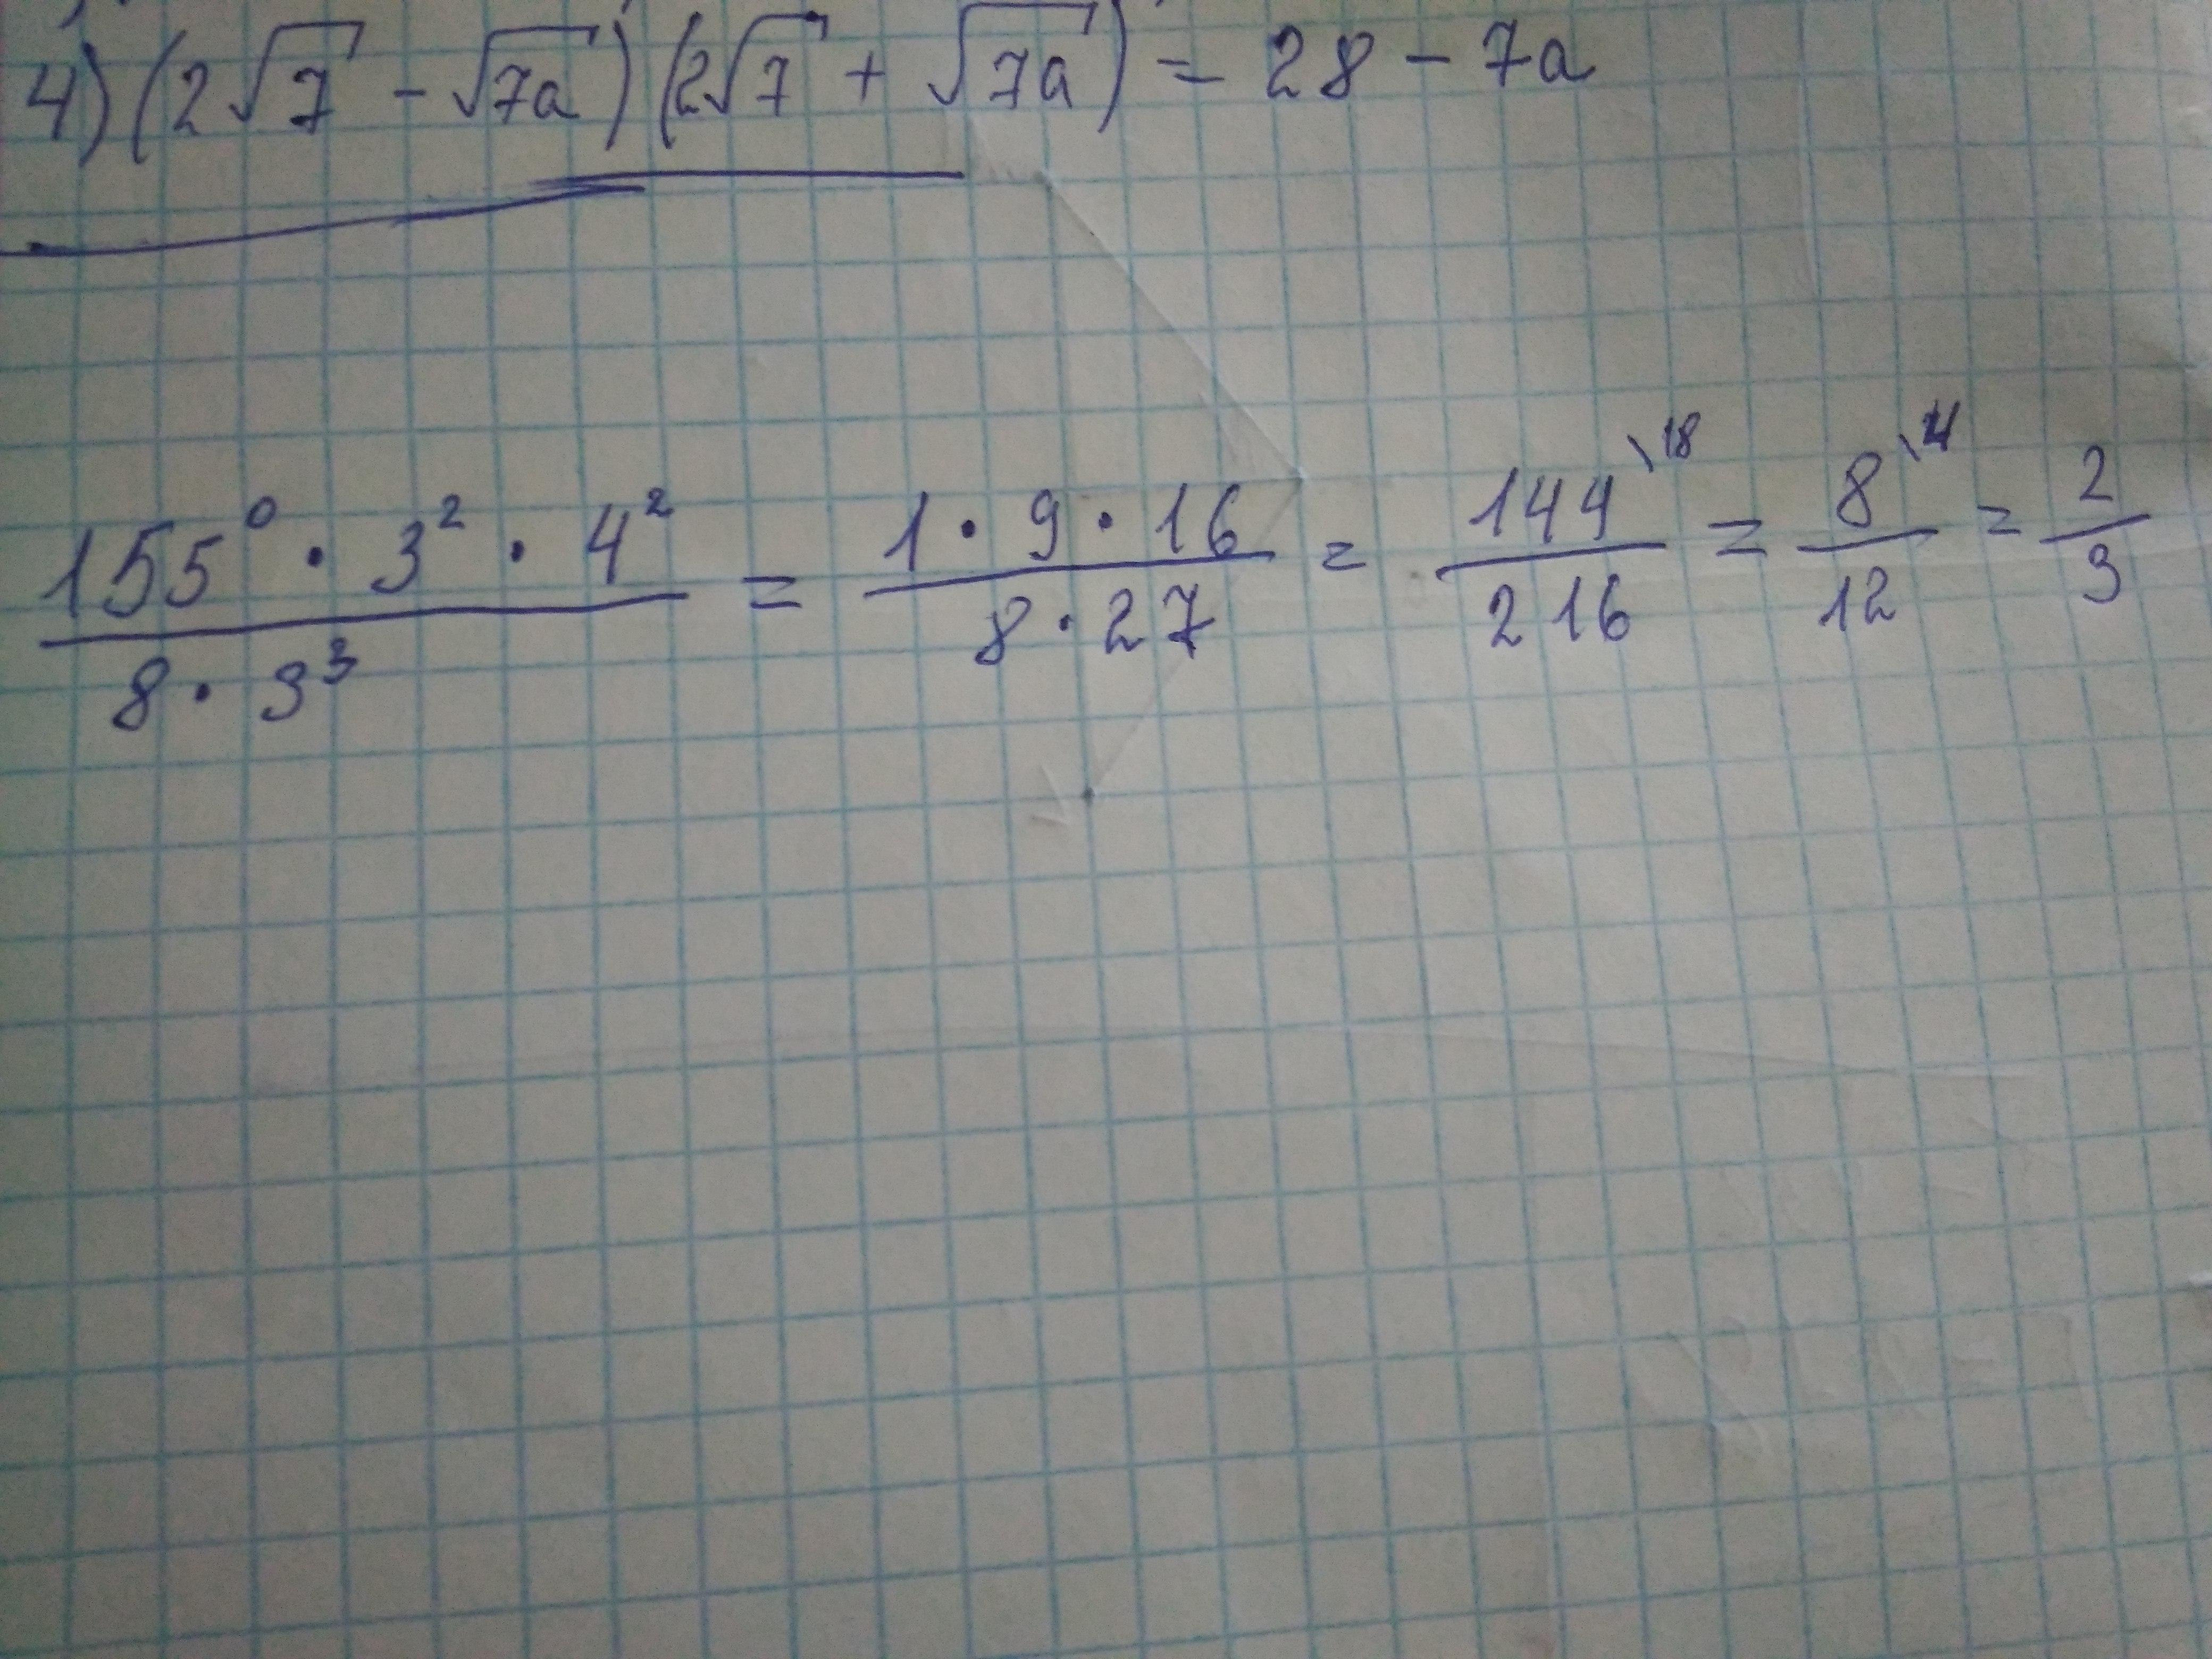 4) (2√7 - √7a) (2√7 + √7a) = 28 - 7a
155⁰ · 3² · 4² / 8 · 3³ = 1 · 9 · 16 / 8 · 27 = 144 \18 / 216 = 8 \4 / 12 = 2 / 3